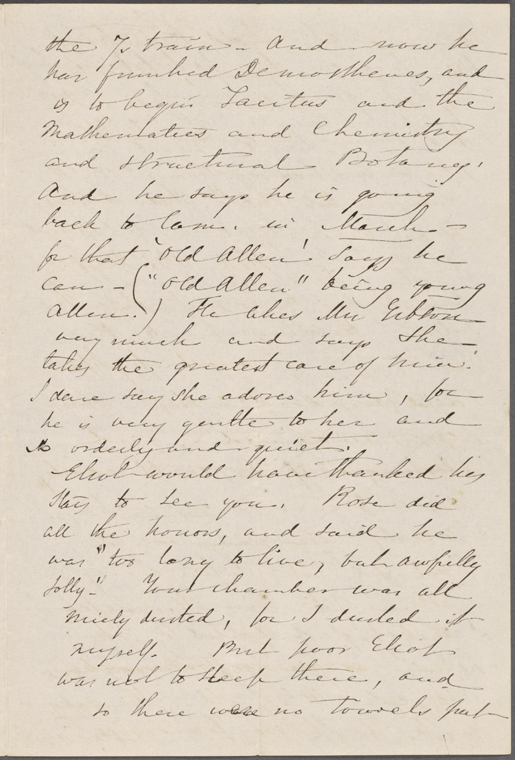 the 7s train - And now he
has finished Demosthenes, and
is to begin Tacitus and the
Mathematics and Chemistry
and structural Botany.
And he says he is going
back to Cam. in March -
for that "Old Allen" says he
can - ("Old Allen" being young
Allen.) He likes Mrs
very much and says "She
takes the greatest care of him."
I dare say she adores him, for
he is very gentle to her and
so orderly and quiet.
Eliot would have thanked his
stars to see you. Rose did
all the honors, and said he
was "too long to live, but awfully
jolly." Your chamber was all
nicely dusted, for I dusted it
myself. But poor Eliot
was not to sleep there, and
so there were no towels put